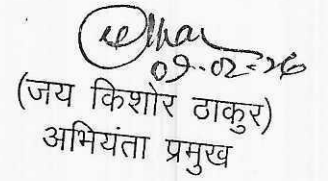 09-02-26
(जय किशोर ठाकुर)
अभियंता प्रमुख